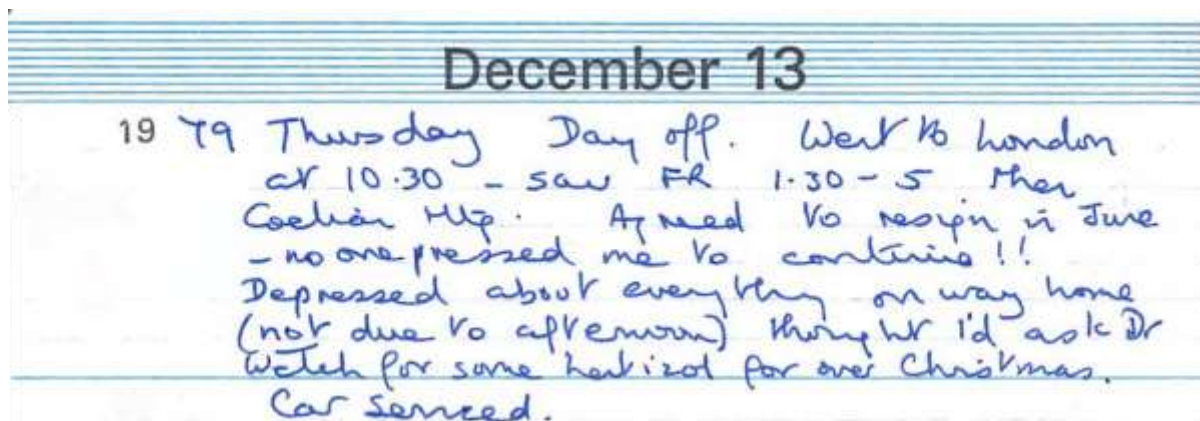 December 13
19 79 Thursday Day off. Went to London
at 10.30 - saw FR 1.30 - 5 then
Coeliac Mtg. Agreed to resign in June
- no one pressed me to continue!!
Depressed about everything on way home
(not due to afternoon) thought I'd ask Dr
for some for over Christmas.
Car serviced.